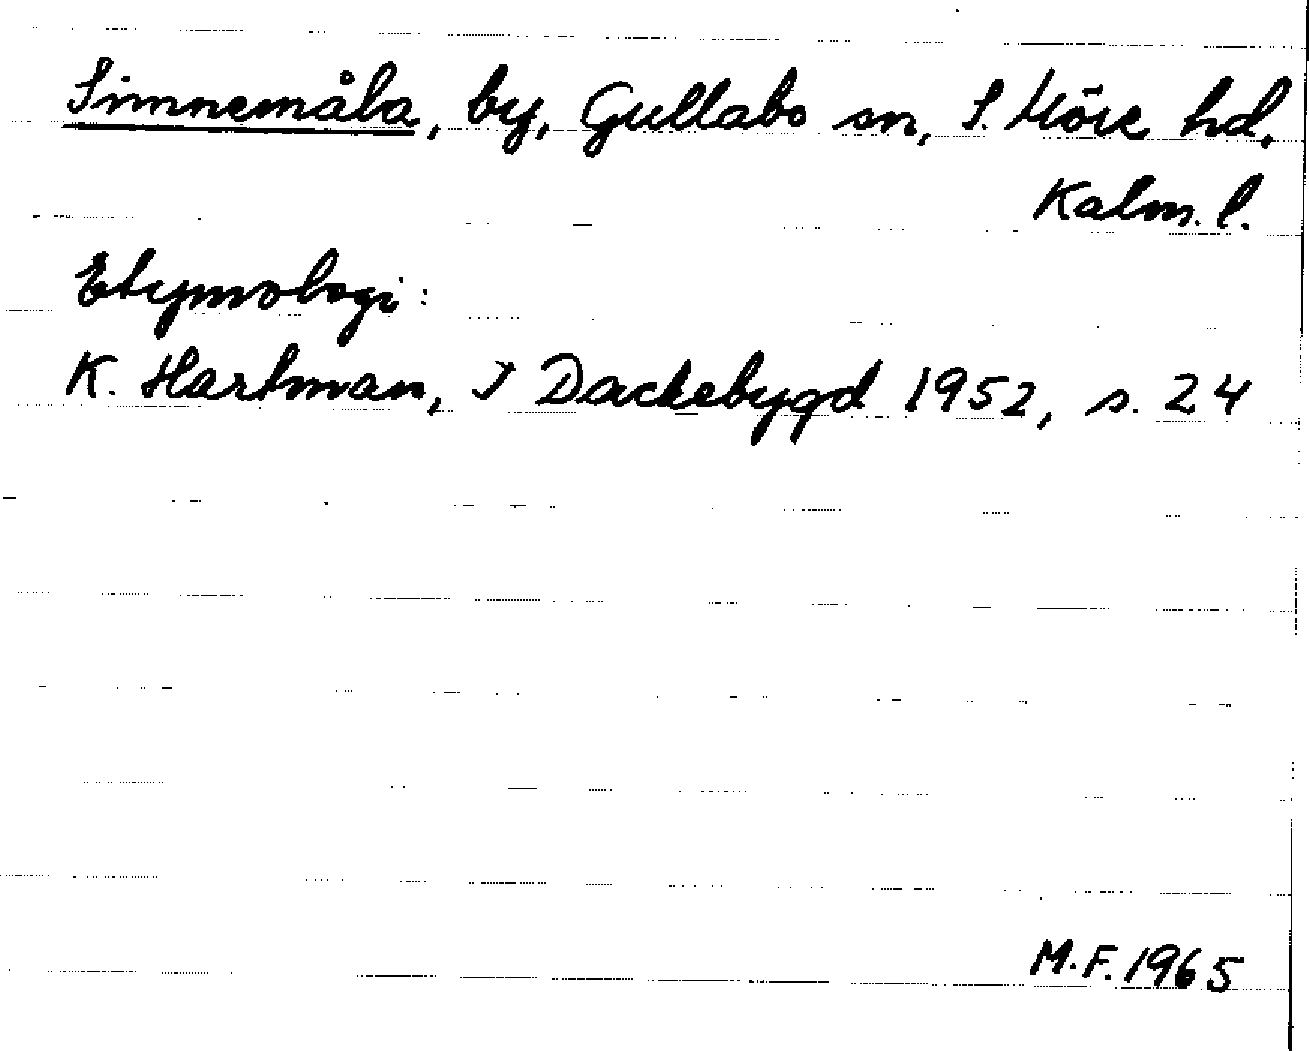 Simnemåla, by, Gullabo sn, S. Möre hd,
Kalm. l.
Etymologi:
K. Hartman, I Dackebygd 1952, s. 24
M.F. 1965